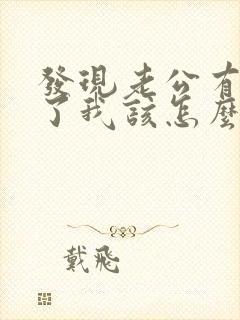 發現老公有
了我該怎麼
戴飛